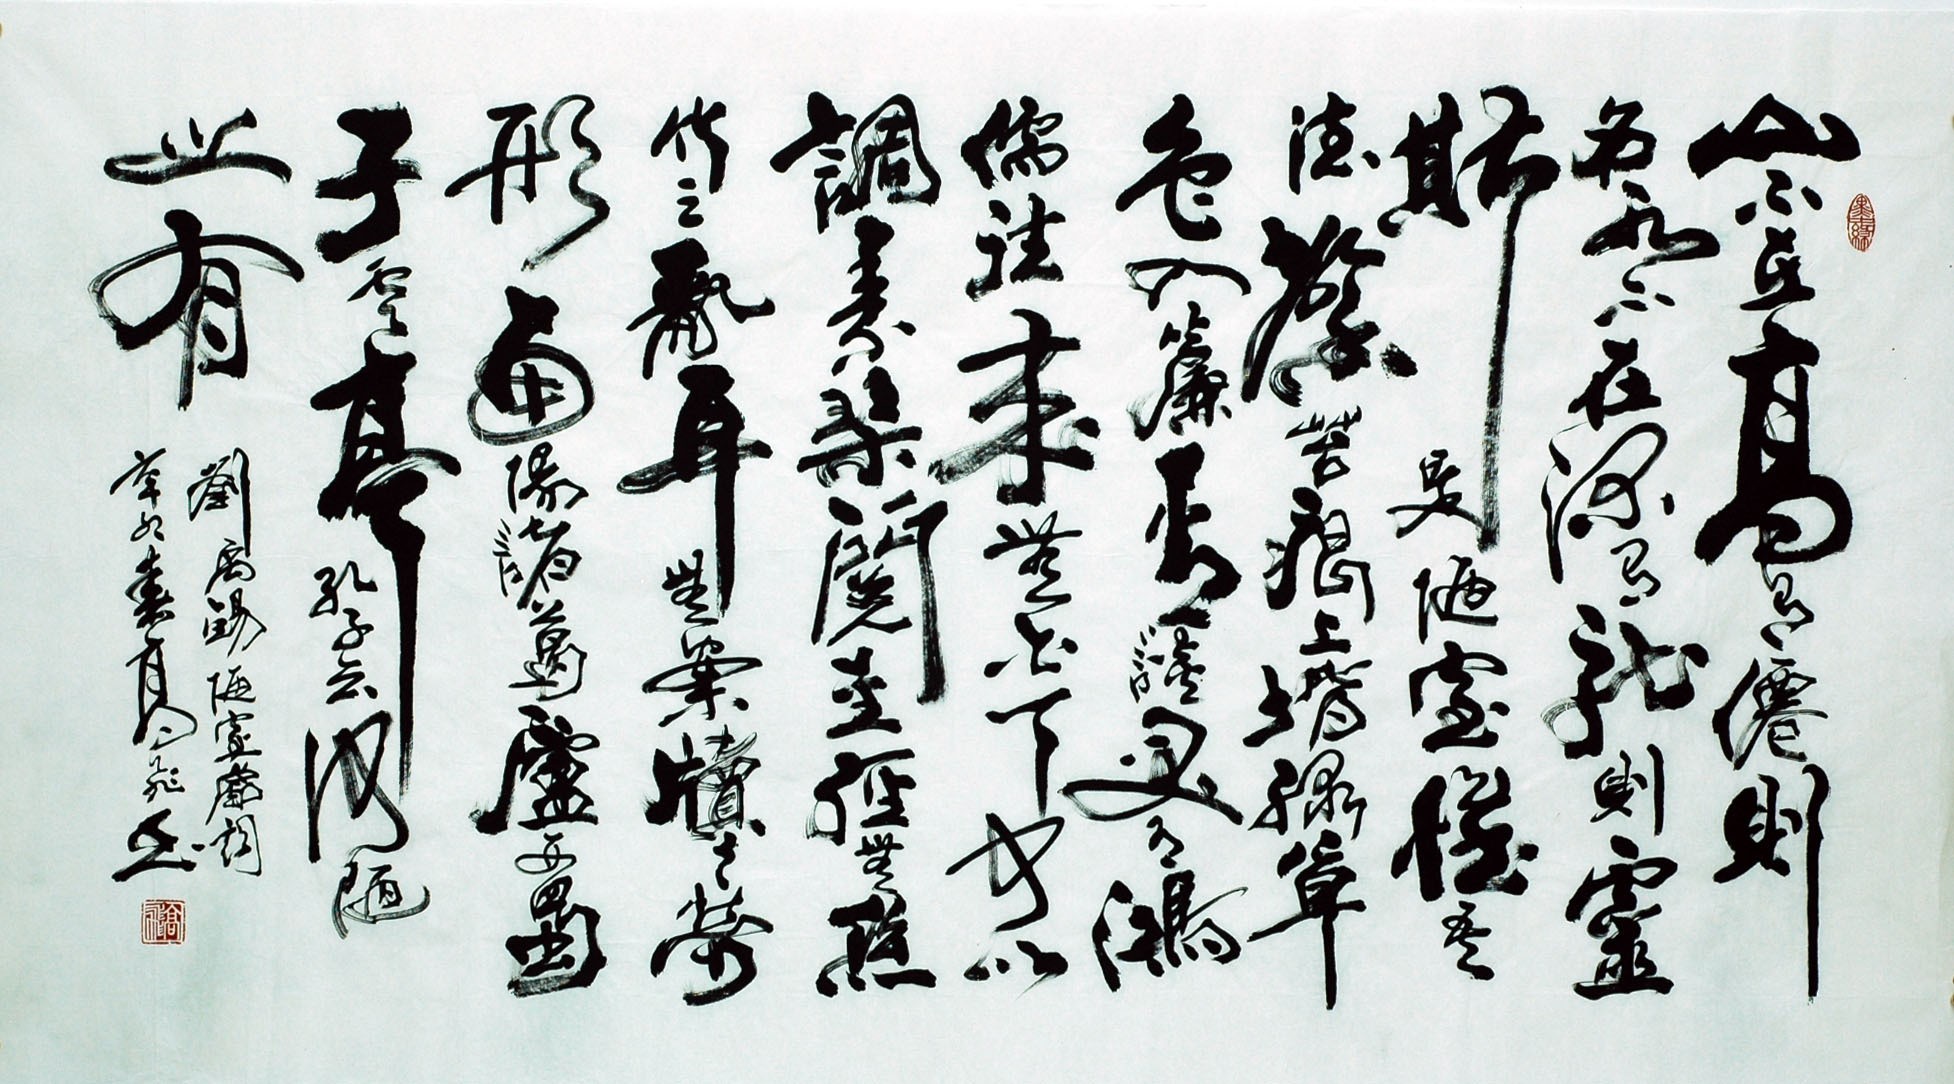 墨緣
山不在高有僊則
名水不在深有龍則靈
斯是陋室惟吾
德馨苔痕上堦綠草
色入簾青談笑有鴻
儒往來無白丁可以
調素琴閱金經無
竹之亂耳無案牘之勞
形南陽諸葛廬西蜀
子雲亭孔子云何陋
之有
劉禹錫陋室
辛卯春月高飛書